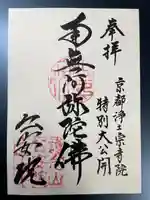 奉拝
京都浄土宗寺院
特別大公開
南無阿弥陀佛